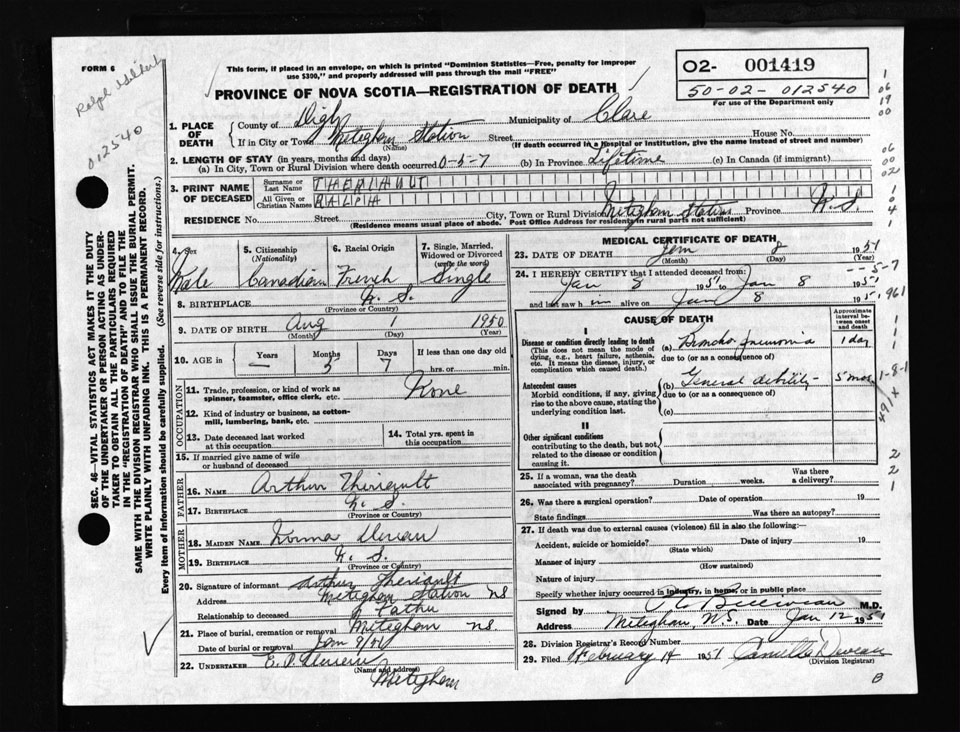 FORM 6
Ralph
012540
This form, if placed in an envelope, on which is printed "Dominion Statistics—Free, penalty for improper
use $300," and properly addressed will pass through the mail "FREE"
PROVINCE OF NOVA SCOTIA—REGISTRATION OF DEATH
O2- 001419
50-02-012540
For use of the Department only
1. PLACE OF DEATH
County of Digby Municipality of Clare
If in City or Town Meteghan Station Street House No.
(Name) (If death occurred in a Hospital or Institution, give the name instead of street and number)
2. LENGTH OF STAY (in years, months and days)
(a) In City, Town or Rural Division where death occurred 0-5-7 (b) In Province Lifetime (c) In Canada (if immigrant)
3. PRINT NAME OF DECEASED
Surname or Last Name THERIAULT
All Given or Christian Names RALPH
RESIDENCE No. Street City, Town or Rural Division Meteghan Station Province N.S.
(Residence means usual place of abode. Post Office Address for residents in rural parts not sufficient)
4. Sex
Male
5. Citizenship (Nationality)
Canadian
6. Racial Origin
French
7. Single, Married, Widowed or Divorced (write the word)
Single
8. BIRTHPLACE N. S.
(Province or Country)
9. DATE OF BIRTH Aug 1 1950
(Month) (Day) (Year)
10. AGE in Years Months Days If less than one day old
— 5 7 hrs. or min.
OCCUPATION
11. Trade, profession, or kind of work as spinner, teamster, office clerk, etc. None
12. Kind of industry or business, as cotton-mill, lumbering, bank, etc.
13. Date deceased last worked at this occupation
14. Total yrs. spent in this occupation
15. If married give name of wife or husband of deceased
FATHER
16. NAME Arthur Theriault
17. BIRTHPLACE N. S.
(Province or Country)
MOTHER
18. MAIDEN NAME
19. BIRTHPLACE N. S.
(Province or Country)
20. Signature of informant Arthur Theriault
Address Meteghan Station NS
Relationship to deceased Father
21. Place of burial, cremation or removal Meteghan NS.
Date of burial or removal Jan 9/51
22. UNDERTAKER
(Name and address)
Meteghan
MEDICAL CERTIFICATE OF DEATH
23. DATE OF DEATH Jan 8 1951
(Month) (Day)
24. I HEREBY CERTIFY that I attended deceased from
Jan 8 1951 to Jan 8 1951
and last saw him alive on Jan 8 1951
CAUSE OF DEATH
Approximate interval between onset and death
I
Disease or condition directly leading to death
(This does not mean the mode of dying, e.g., heart failure, asthenia, etc. It means the disease, injury, or complication which caused death.)
(a) Broncho pneumonia 1 day
due to (or as a consequence of)
Antecedent causes
Morbid conditions, if any, giving rise to the above cause, stating the underlying condition last.
(b) General debility 5 mos
due to (or as a consequence of)
(c)
II
Other significant conditions
contributing to the death, but not related to the disease or condition causing it.
25. If a woman, was the death associated with pregnancy? Duration weeks. Was there a delivery?
26. Was there surgical operation? Date of operation 19
State findings Was there an autopsy?
27. If death was due to external causes (violence) fill in also the following:—
Accident, suicide or homicide? Date of injury 19
(State which)
Manner of injury
(How sustained)
Nature of injury
Specify whether injury occurred in industry, in home, or in public place
Signed by M.D.
Address Meteghan, N.S. Date Jan 12 1951
28. Division Registrar's Record Number
29. Filed February 14 1951 Camille
(Division Registrar)
B
SEC. 46—VITAL STATISTICS ACT MAKES IT THE DUTY
OF THE UNDERTAKER OR PERSON ACTING AS UNDER-
TAKER TO OBTAIN ALL THE PARTICULARS REQUIRED
IN THE "REGISTRATION OF DEATH" AND TO FILE THE
SAME WITH THE DIVISION REGISTRAR WHO SHALL ISSUE THE BURIAL PERMIT.
WRITE PLAINLY WITH UNFADING INK. THIS IS A PERMANENT RECORD.
Every item of information should be carefully supplied. (See reverse side for instructions.)
1
06
19
00
06
00
02
1
04
1
--5-7
961
1-8-1
491x
2
2
1